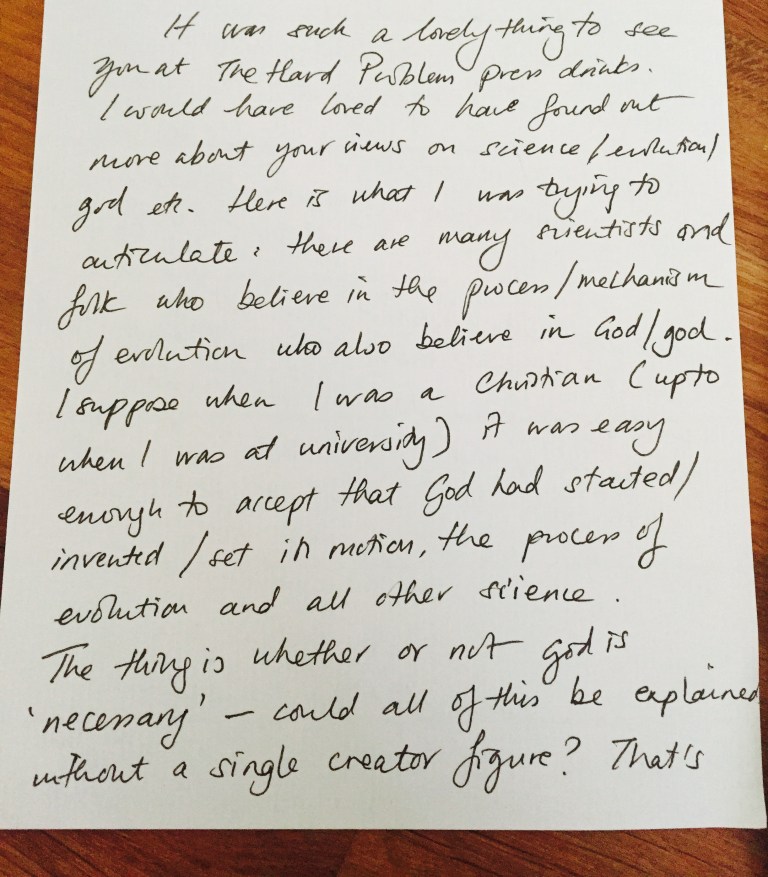 It was such a lovely thing to see
you at The Hard Problem press drinks.
I would have loved to have found out
more about your views on science/evolution/
god etc. Here is what I was trying to
articulate: there are many scientists and
folk who believe in the process/mechanism
of evolution who also believe in God/god.
I suppose when I was a Christian (upto
when I was at university) it was easy
enough to accept that God had started/
invented/set in motion, the process of
evolution and all other science.
The thing is whether or not god is
'necessary' – could all of this be explained
without a single creator figure? That's